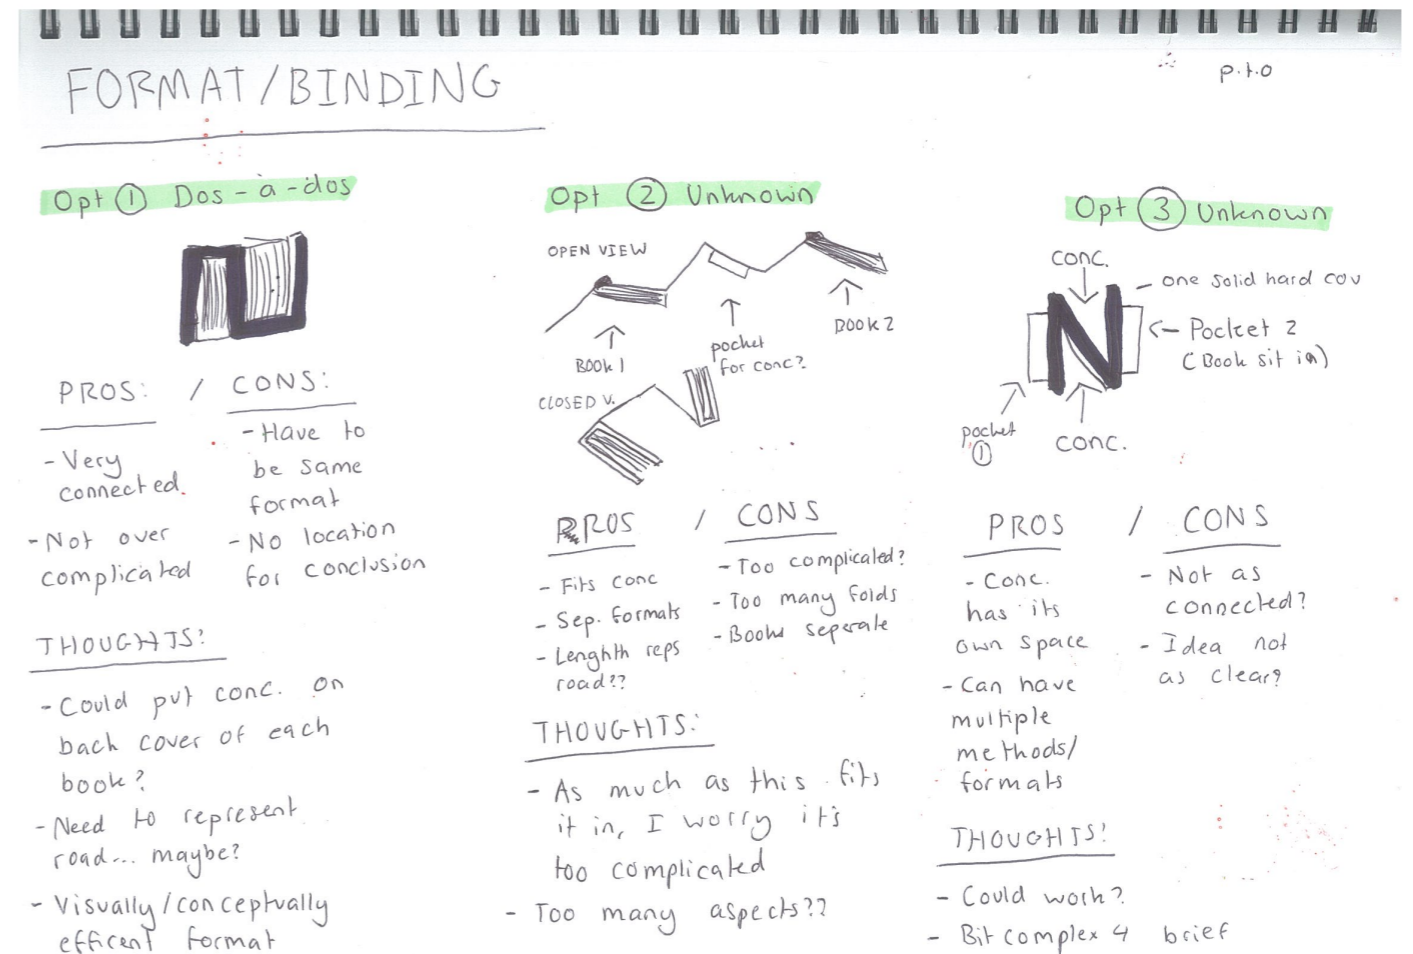 p.t.o
FORMAT/BINDING
Opt ① Dos-à-dos
PROS: / CONS:
- Very
connected.
- Not over
complicated
- Have to
be same
format
- No location
for conclusion
THOUGHTS:
- Could put conc. on
back cover of each
book?
- Need to represent
road... maybe?
- Visually/conceptually
efficent format
Opt ② Unknown
OPEN VIEW
BOOK 1
pocket
for conc?
BOOK 2
CLOSED V.
PROS / CONS
- Fits conc
- Sep. formats
- Lenghth reps
road??
- Too complicated?
- Too many folds
- Books seperate
THOUGHTS:
- As much as this fits
it in, I worry it's
too complicated
- Too many aspects??
Opt ③ Unknown
conc.
one solid hard cov
Pocket 2
(Book sit in)
pocket
①
conc.
PROS / CONS
- Conc.
has its
own space
- Can have
multiple
methods/
formats
- Not as
connected?
- Idea not
as clear?
THOUGHTS:
- Could work?
- Bit complex 4 brief